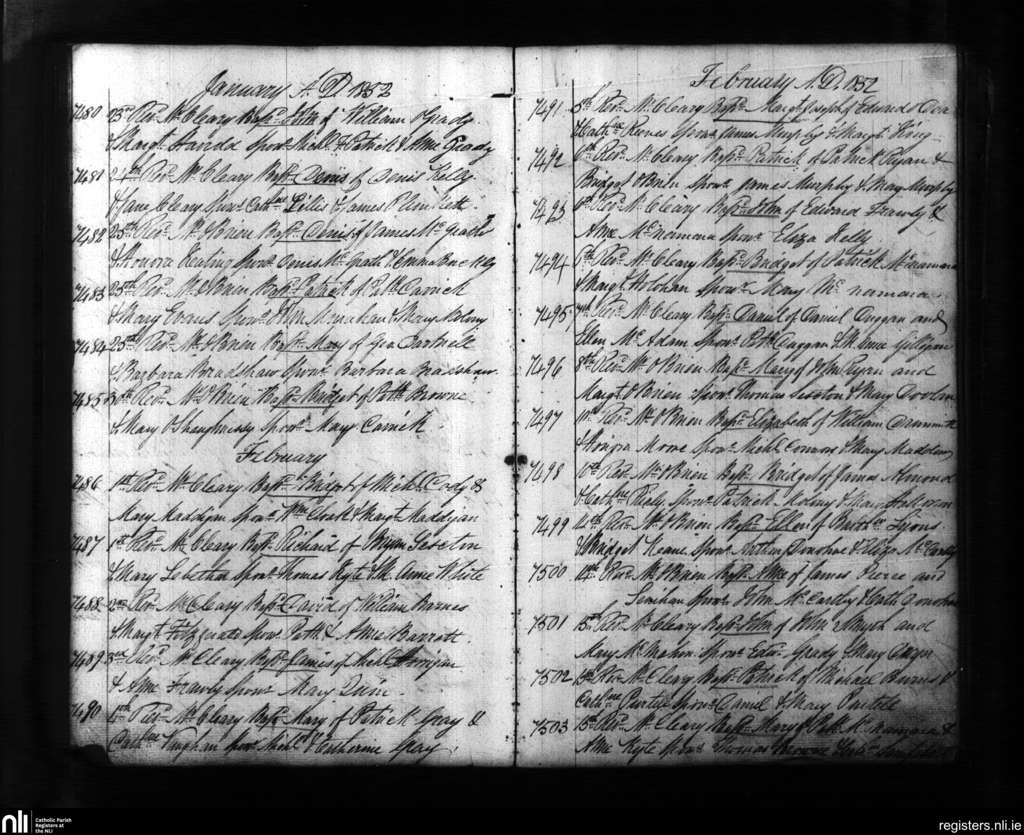 January A.D. 1852
7480 23rd Revd. Mr. Cleary Bapt. John of William O'Grady
& Margt. Sponr. Michl. & Patrick & Anne Grady
7481 24th Revd. Mr. Cleary Bapt. Denis of Denis Kelly
& Jane Cleary Sponr. Cathne Lillis & James Plunkett
7482 25th Revd. Mr. O'Brien Bapt. Denis of James Mc Grade
& Honora Keating Sponr. Denis Mc Grade & Emma Buckley
7483 25th Revd. Mr. O'Brien Bapt. Patrick of Patk. Carrick
& Mary Evans Sponr. John & Mary Molony
7484 25th Revd. Mr. O'Brien Bapt. Mary of Geo.
& Barbara Bradshaw Sponr. Barbara Bradshaw
7485 30th Revd. Mr. O'Brien Bapt. Bridget of Patk. Browne
& Mary O Shaughnessy Sponr. Mary Carrick
February
7486 1st Revd. Mr. Cleary Bapt. Bridgt. of Michl. Cody &
Mary Maddigan Sponr. Wm. & Margt. Maddigan
7487 1st Revd. Mr. Cleary Bapt. Richard of Bryan
& Mary Sponr. Thomas Kyte & M. Anne White
7488 2nd Revd. Mr. Cleary Bapt. David of William Barnes
& Margt. Sponr. Patk. & Anne Barratt
7489 3rd Revd. Mr. Cleary Bapt. James of Michl. Horrigan
& Anne Frawly Sponr. Mary Quin
7490 Revd. Mr. Cleary Bapt. Mary of Patrick Gray &
Cathne Vaughan Sponr. Michl. & Catherine Gray
February A.D. 1852
7491 5th Revd. Mr. Cleary Bapt. Margt. of Edward
& Cathne Reeves Sponr. James Murphy & Margt. King
7492 6th Revd. Mr. Cleary Bapt. Patrick of Patrick Ryan &
Bridget O'Brien Sponr. James Murphy & Mary Murphy
7493 Revd. Mr. Cleary Bapt. John of Edward Frawly &
Anne Mc.namara Sponr. Eliza Kelly
7494 Revd. Mr. Cleary Bapt. Bridget of Patrick Mcnamara
& Margt. Holohan Sponr. Mary Mc. namara
7495 7th Revd. Mr. Cleary Bapt. Daniel of Daniel Duggan and
Ellen Mc. Adam Sponr. Patk. Duggan & M. Anne Gilligan
7496 8th Revd. Mr. O'Brien Bapt. Mary of Wm. Ryan and
Margt. O'Brien Sponr. Thomas Sexton & Mary Doolan
7497 10th Revd. Mr. O'Brien Bapt. Elizabeth of William
& Honora Moore Sponr. Michl. Connors & Mary Madden
7498 10th Revd. Mr. O'Brien Bapt. Bridget of James Almond
& Cathne Sponr. Patrick Molony & Mary
7499 Revd. Mr. O'Brien Bapt. Ellen of Lyons
& Bridget Keane Sponr. Arthur Donohoe & Eliza Mc. Carthy
7500 14th Revd. Mr. O'Brien Bapt. Anne of James Pierce and
Linihan Sponr. John Mc. Carthy & Cath Donohoe
7501 15th Revd. Mr. Cleary Bapt. John of John and
Mary Mc. Mahon Sponr. Edw. Grady & Mary
7502 15th Revd. Mr. Cleary Bapt. Patrick of Michael Burns &
Cathne Purtill Sponr. Daniel & Mary Purtill
7503 15th Revd. Mr. Cleary Bapt. Mary of Patk. Mc namara &
Anne Kyte Sponr. Thomas Browne
nli
Catholic Parish
Registers at
the NLI
registers.nli.ie